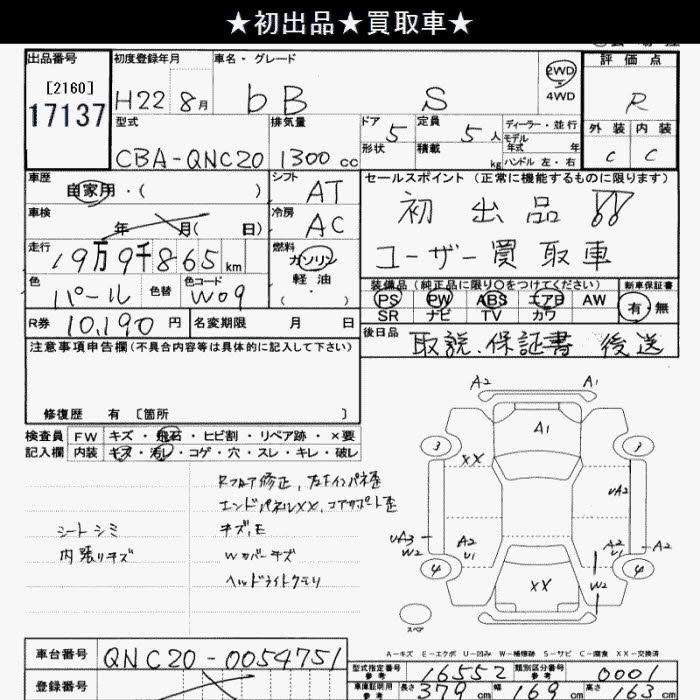 ★初出品★買取車★
出品番号
[2160]
17137
初度登録年月
H22 8月
車名・グレード
bB S
2WD
4WD
評価点
R
外装 内装
C C
型式
CBA-QNC20
排気量
1300 cc
ドア 5
形状
定員 5 人
積載 kg
ディーラー・並行
モデル
年式 年
ハンドル 左・右
車歴
自家用・( )
シフト
AT
車検
年 月( 日)
冷房
AC
走行
19万9千865 km
燃料
ガソリン
軽油
( )
色
パール
色替
色コード
W09
R券 10,190 円
名変期限 月 日
セールスポイント(正常に機能するものに限ります)
初出品
ユーザー買取車
装備品(純正品に限り○をつけてください)
PS PW ABS エアB AW
SR ナビ TV カワ
新車保証書
有・無
後日品
取説、保証書 後送
注意事項申告欄(不具合内容等は具体的に記入して下さい)
修復歴 有 [箇所 ]
検査員 FW キズ・飛石・ヒビ割・リペア跡・×要
記入欄 内装 キズ・汚レ・コゲ・穴・スレ・キレ・破レ
エンドパネルXX、コアサポート歪
シートシミ
キズ、E
内張りキズ
Wカバーキズ
ヘッドライトクモリ
A2 A1
A1
3 3
XX
UA2
UA3
W2
A2
U1
A2
U1
A2
4 4
XX
W2
スペア
A-キズ E-エクボ U-凹み W-補修跡 S-サビ C-腐食 XX-交換済
車台番号 QNC20-0054751
登録番号
型式指定番号
参考
16552
類別区分番号
参考
0001
車庫証明用
参考
長さ 379 cm 幅 169 cm 高さ 163 cm